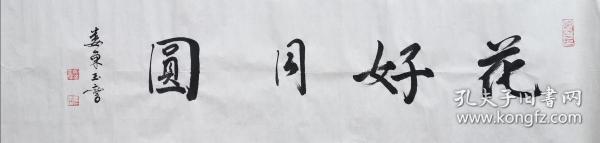 花好月圓
婁東玉書
孔夫子旧书网
www.kongfz.com